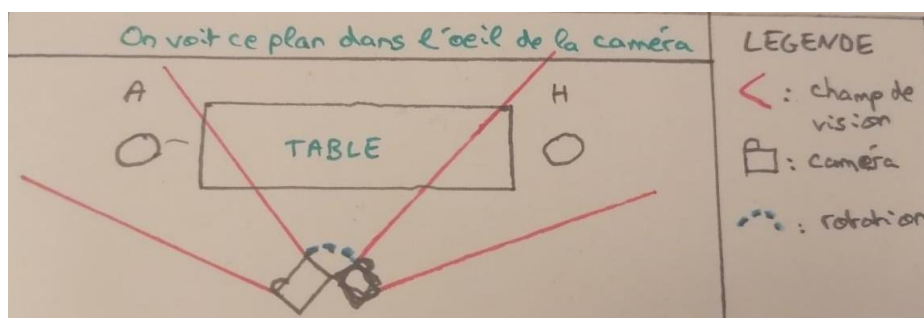 On voit ce plan dans l'oeil de la caméra
A
H
TABLE
LEGENDE
: champ de
vision
: caméra
: rotation